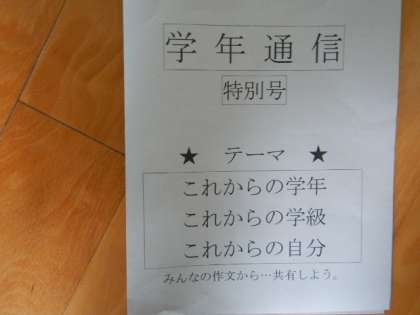 学年通信
特別号
★ テーマ ★
これからの学年
これからの学級
これからの自分
みんなの作文から…共有しよう。